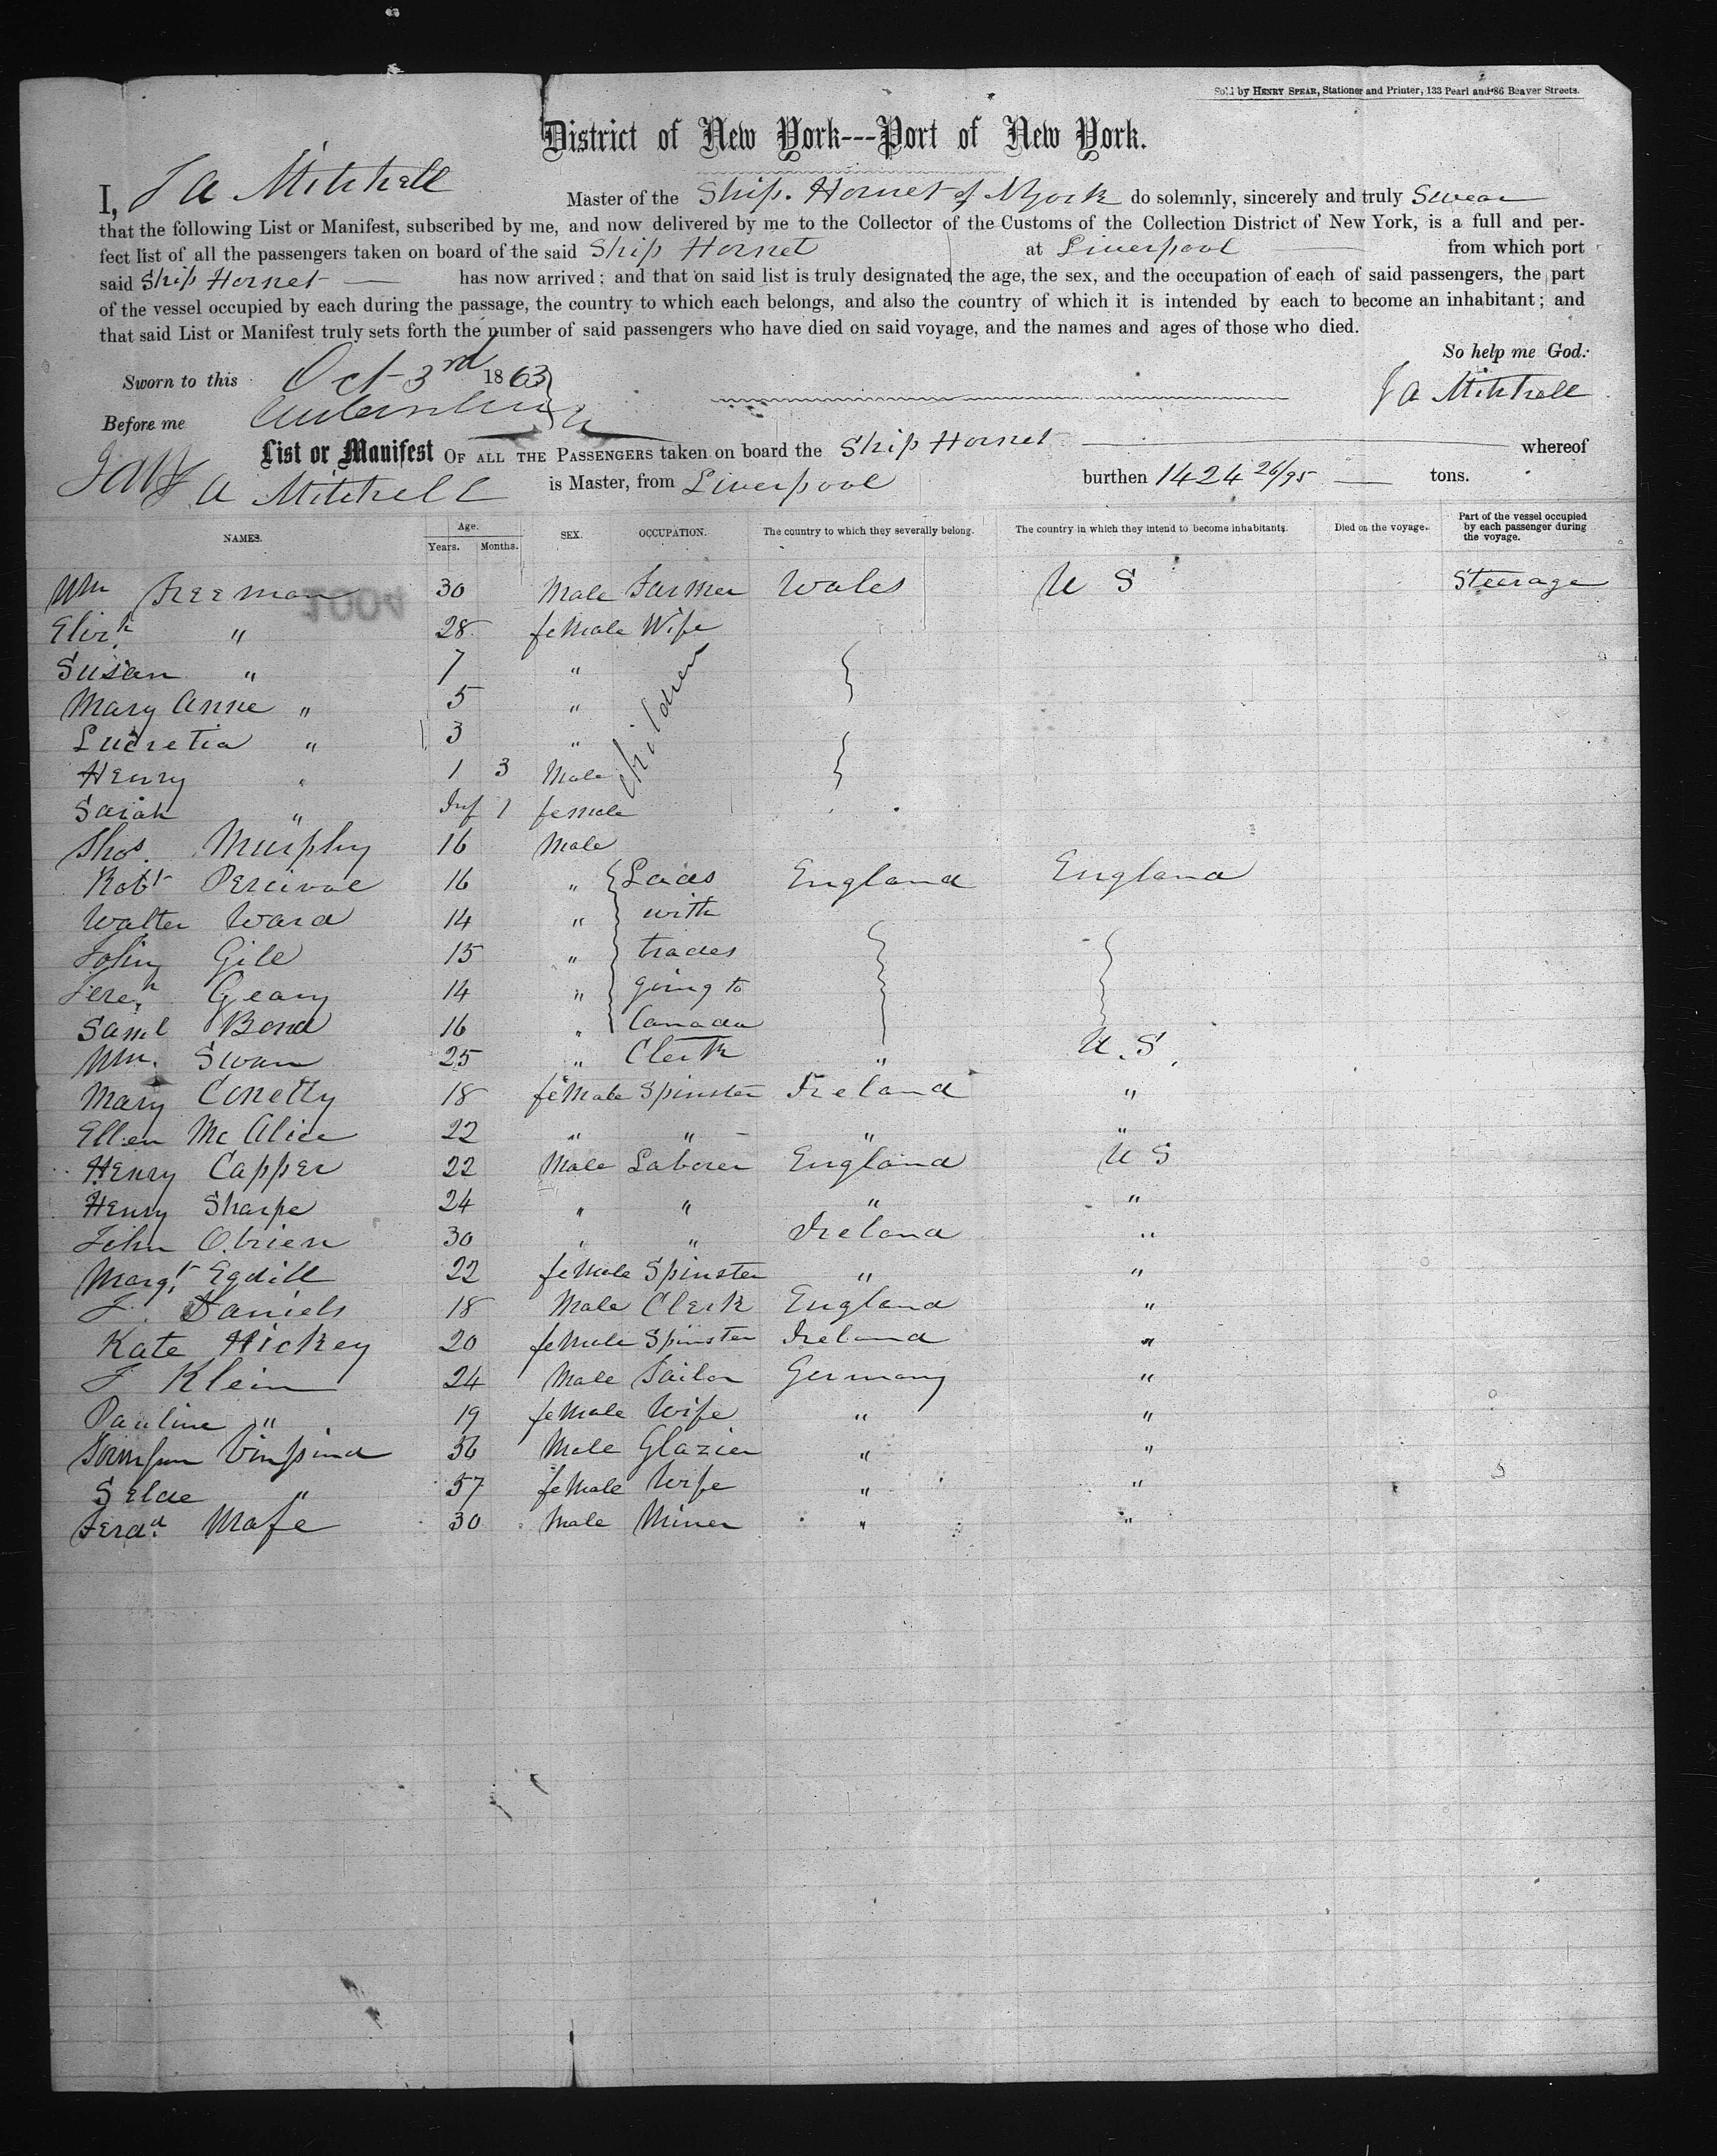 Sold by HENRY SPEAR, Stationer and Printer, 133 Pearl and 86 Beaver Streets.
District of New York---Port of New York.
I, J A Mitchell Master of the Ship. Hornet of NYork do solemnly, sincerely and truly Swear
that the following List or Manifest, subscribed by me, and now delivered by me to the Collector of the Customs of the Collection District of New York, is a full and per-
fect list of all the passengers taken on board of the said Ship Hornet at Liverpool from which port
said Ship Hornet has now arrived; and that on said list is truly designated the age, the sex, and the occupation of each of said passengers, the part
of the vessel occupied by each during the passage, the country to which each belongs, and also the country of which it is intended by each to become an inhabitant; and
that said List or Manifest truly sets forth the number of said passengers who have died on said voyage, and the names and ages of those who died.
So help me God.
Sworn to this Oct 3rd 1863 J A Mitchell
Before me
List or Manifest OF ALL THE PASSENGERS taken on board the Ship Hornet whereof
J A Mitchell is Master, from Liverpool burthen 1424 26/95 tons.
NAMES. Age. Years. Months. SEX. OCCUPATION. The country to which they severally belong. The country in which they intend to become inhabitants. Died on the voyage. Part of the vessel occupied by each passenger during the voyage.
1004
Wm Freeman 30 Male Farmer Wales U S Steerage
Elizh " 28 female Wife
Susan " 7 " children
Mary Anne " 5 "
Lucretia " 3 "
Henry " 1 3 Male
Sarah " Inf 1 female
Thos. Murphy 16 Male
Robt Percival 16 " Lads England England
Walter Ward 14 " with
John Gill 15 " trades
Jereh Geary 14 " going to
Saml Bond 16 " Canada
Wm. Swan 25 " Clerk " U.S.
Mary Conelly 18 female Spinster Ireland "
Ellen Mc Alice 22 " " " "
Henry Capper 22 Male Laborer England U S
Henry Sharpe 24 " " " "
John O.brien 30 " " Ireland "
Margt Egdill 22 female Spinster " "
J. Daniels 18 Male Clerk England "
Kate Hickey 20 female Spinster Ireland "
J Klein 24 Male Tailor Germany "
Pauline " 19 female Wife " "
36 Male Glazier " "
Selae " 37 female Wife " "
Ferdd. Mafe 30 Male Miner " "